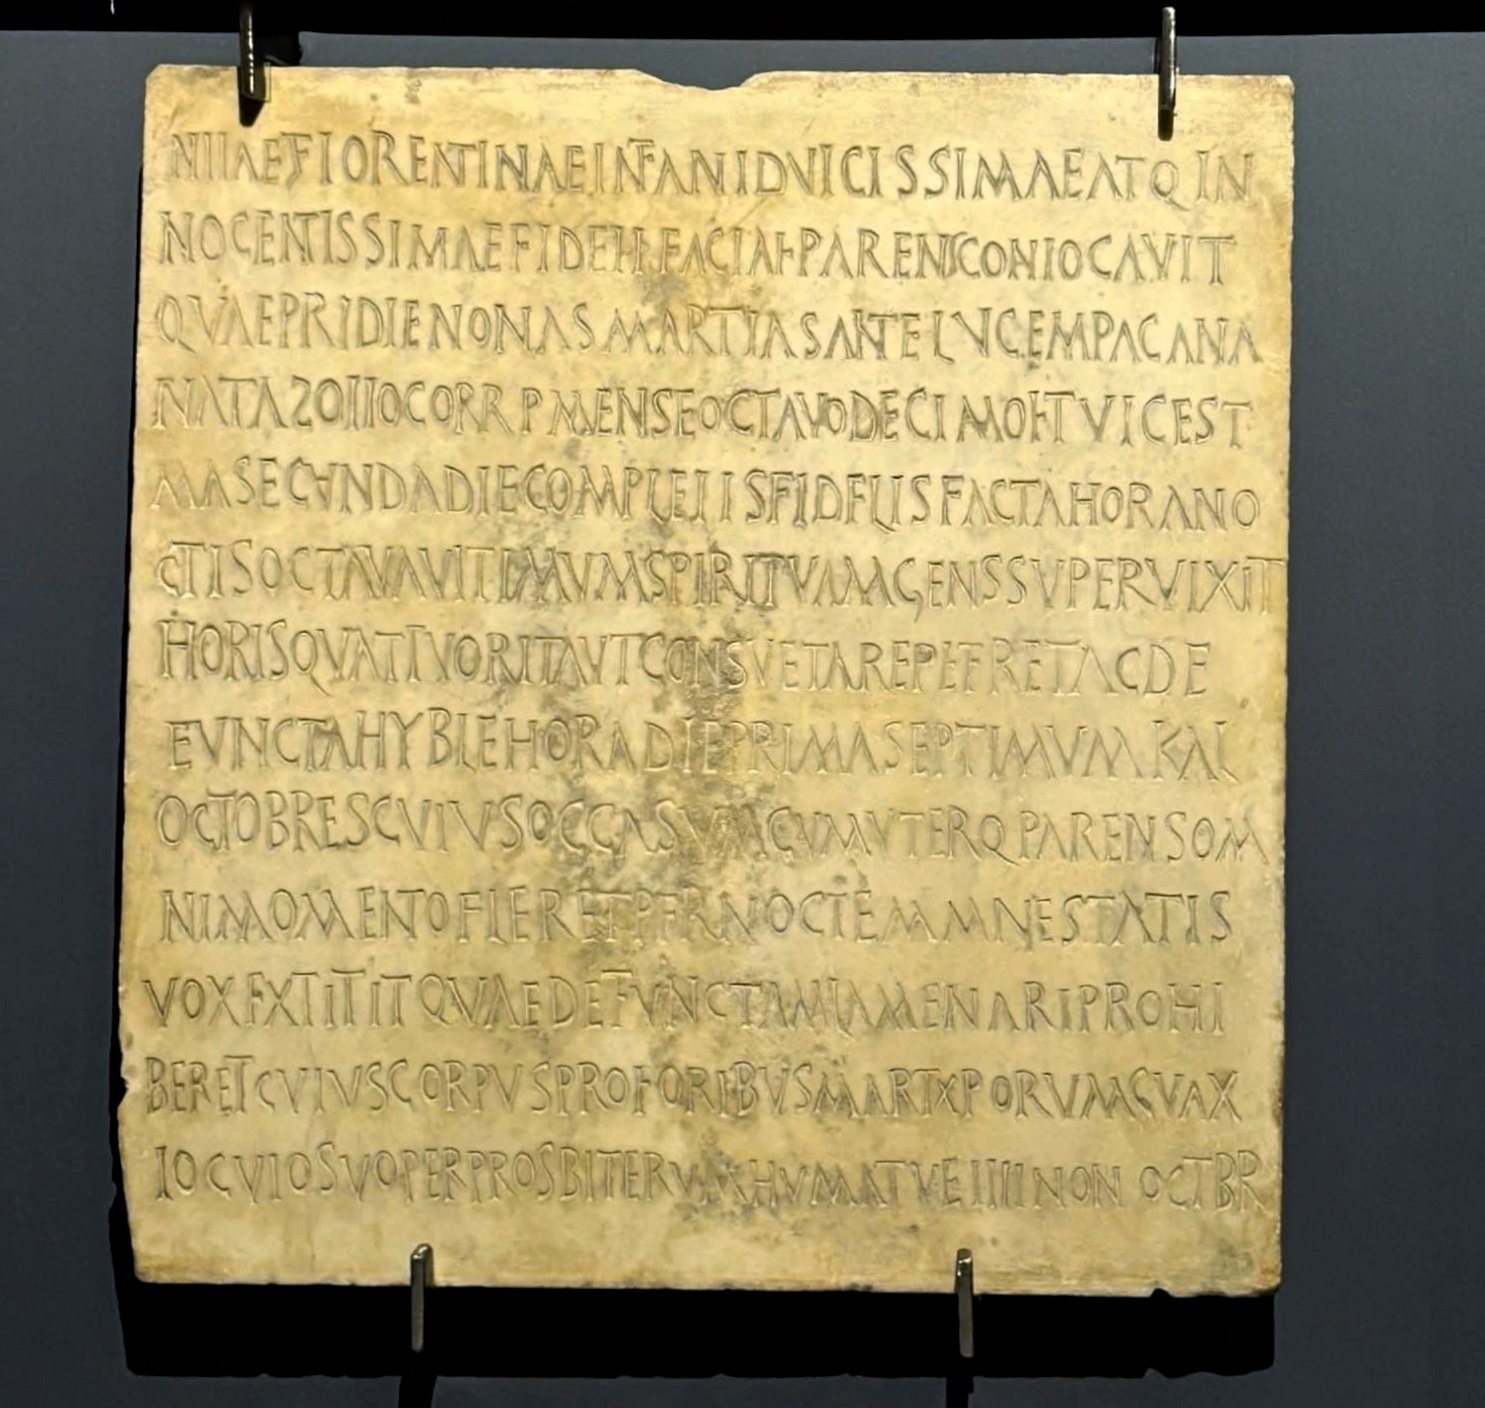 NIIAEFIORENTINAEINFANIDVICISSIMAEATQIN
NOCENTISSIMAEFIDELIFACIAIPARENSCONIOCAVIT
QVAEPRIDIENONASMARTIASANTELVCEMPACANA
NATAZOIIOCORRPMENSEOCTAVODECIMOETVICEST
MASECVNDADIECOMPLEIISFIDELISFACTAHORANO
CTISOCTAVAVITIMVMSPIRITVAMGENSSVPERVIXIT
HORISQVATTVORITAVTCONSVETAREPETERETACDE
EVNCTAHYBLEHORADIEPRIMASEPTIMVMKAL
OCTOBRESCVIVSOCCASVMCVMVTERQPARENSOM
NIMOMENTOFLERETPERNOCTEMMNESTATIS
VOXEXTITITQVAEDEFVNCTAMLAMENARIPROHI
BERETCVIVSCORPVSPROFORIBVSMARTXPORVMCVAX
IOCVIOSVOPERPROSBITERVMHVMATVEIIIINONOCTBR